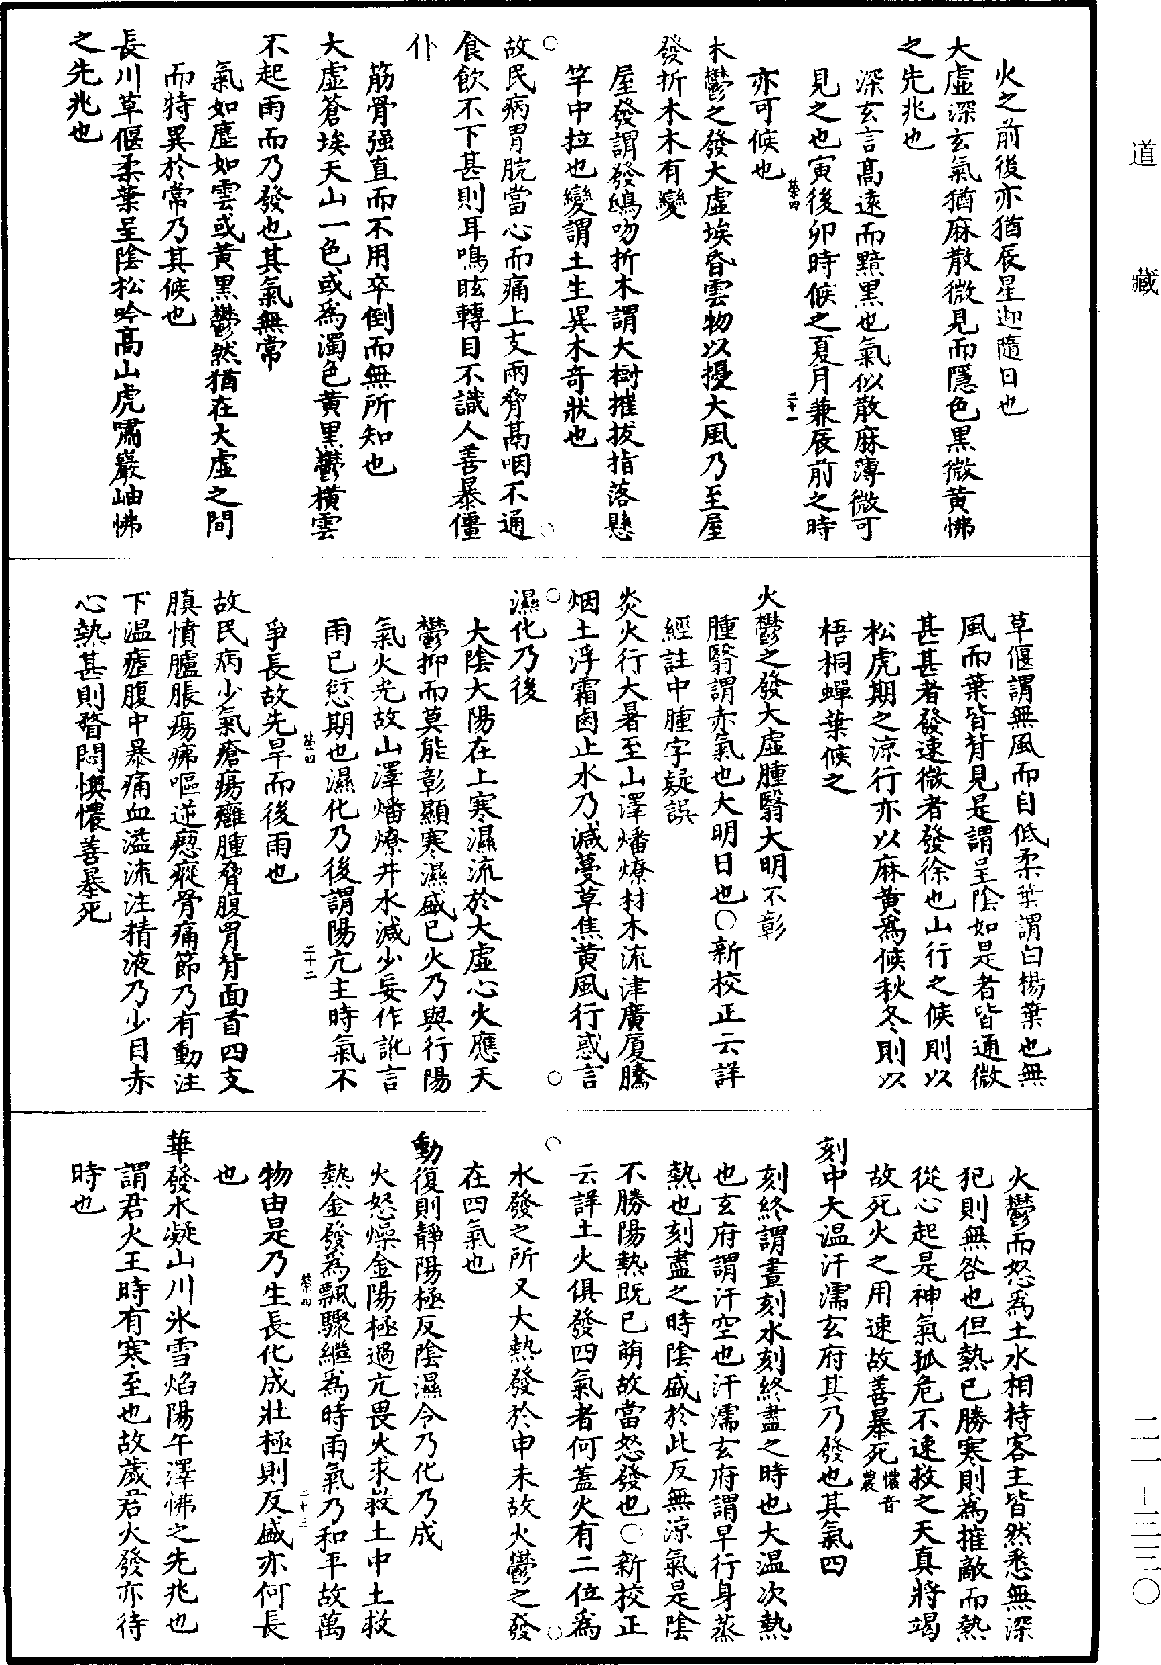 道藏
火之前後亦猶辰星迎隨日也
大虛深玄氣猶麻散微見而隱色黑微黃怫
之先兆也
深玄言高遠而黯黑也氣似散麻薄微可
見之也寅後卯時候之夏月兼辰前之時
亦可候也
木鬱之發大虛埃昏雲物以擾大風乃至屋
發折木木有變
屋發謂發鴟吻折木謂大樹摧拔指落懸
竿中拉也變謂土生異木奇狀也
故民病胃脘當心而痛上支兩脅鬲咽不通
食飲不下甚則耳鳴眩轉目不識人善暴僵
仆
筋骨强直而不用卒倒而無所知也
大虛蒼埃天山一色或爲濁色黃黑鬱橫雲
不起雨而乃發也其氣無常
氣如塵如雲或黃黑鬱然猶在大虛之間
而特異於常乃其候也
長川草偃柔葉呈陰松吟高山虎嘯巖岫怫
之先兆也
草偃謂無風而自低柔葉謂白楊葉也無
風而葉皆背見是謂呈陰如是者皆通微
甚甚者發速微者發徐也山行之候則以
松虎期之涼行亦以麻黃爲候秋冬則以
梧桐蟬葉候之
火鬱之發大虛腫翳大明不彰
腫翳謂赤氣也大明日也○新校正云詳
經註中腫字疑誤
炎火行大暑至山澤燔燎材木流津廣厦騰
烟土浮霜鹵止水乃減蔓草焦黃風行惑言
濕化乃後
大陰大陽在上寒濕流於大虛心火應天
鬱抑而莫能彰顯寒濕盛已火乃與行陽
氣火光故山澤燔燎井水減少妄作訛言
雨已愆期也濕化乃後謂陽亢主時氣不
爭長故先旱而後雨也
故民病少氣瘡瘍癰腫脅腹胃背面首四支
䐜憤臚脹瘍疿嘔逆瘛瘲骨痛節乃有動注
下溫瘧腹中暴痛血溢流注精液乃少目赤
心熱甚則瞀悶懊憹善暴死
火鬱而怒爲土水相持客主皆然悉無深
犯則無咎也但熱已勝寒則爲摧敵而熱
從心起是神氣孤危不速救之天真將竭
故死火之用速故善暴死憹音農
刻中大温汗濡玄府其乃發也其氣四
刻終謂晝刻水刻終盡之時也大温次熱
也玄府謂汗空也汗濡玄府謂早行身蒸
熱也刻盡之時陰盛於此反無涼氣是陰
不勝陽熱既已萌故當怒發也○新校正
云詳土火俱發四氣者何蓋火有二位爲
水發之所又大熱發於申未故火鬱之發
在四氣也
動復則靜陽極反陰濕令乃化乃成
火怒爍金陽極過亢畏火求救土中土救
熱金發爲飄驟繼爲時雨氣乃和平故萬
物由是乃生長化成壯極則反盛亦何長
也
華發水凝山川氷雪焰陽午澤怫之先兆也
謂君火王時有寒至也故歲君火發亦待
時也
二一—三三〇